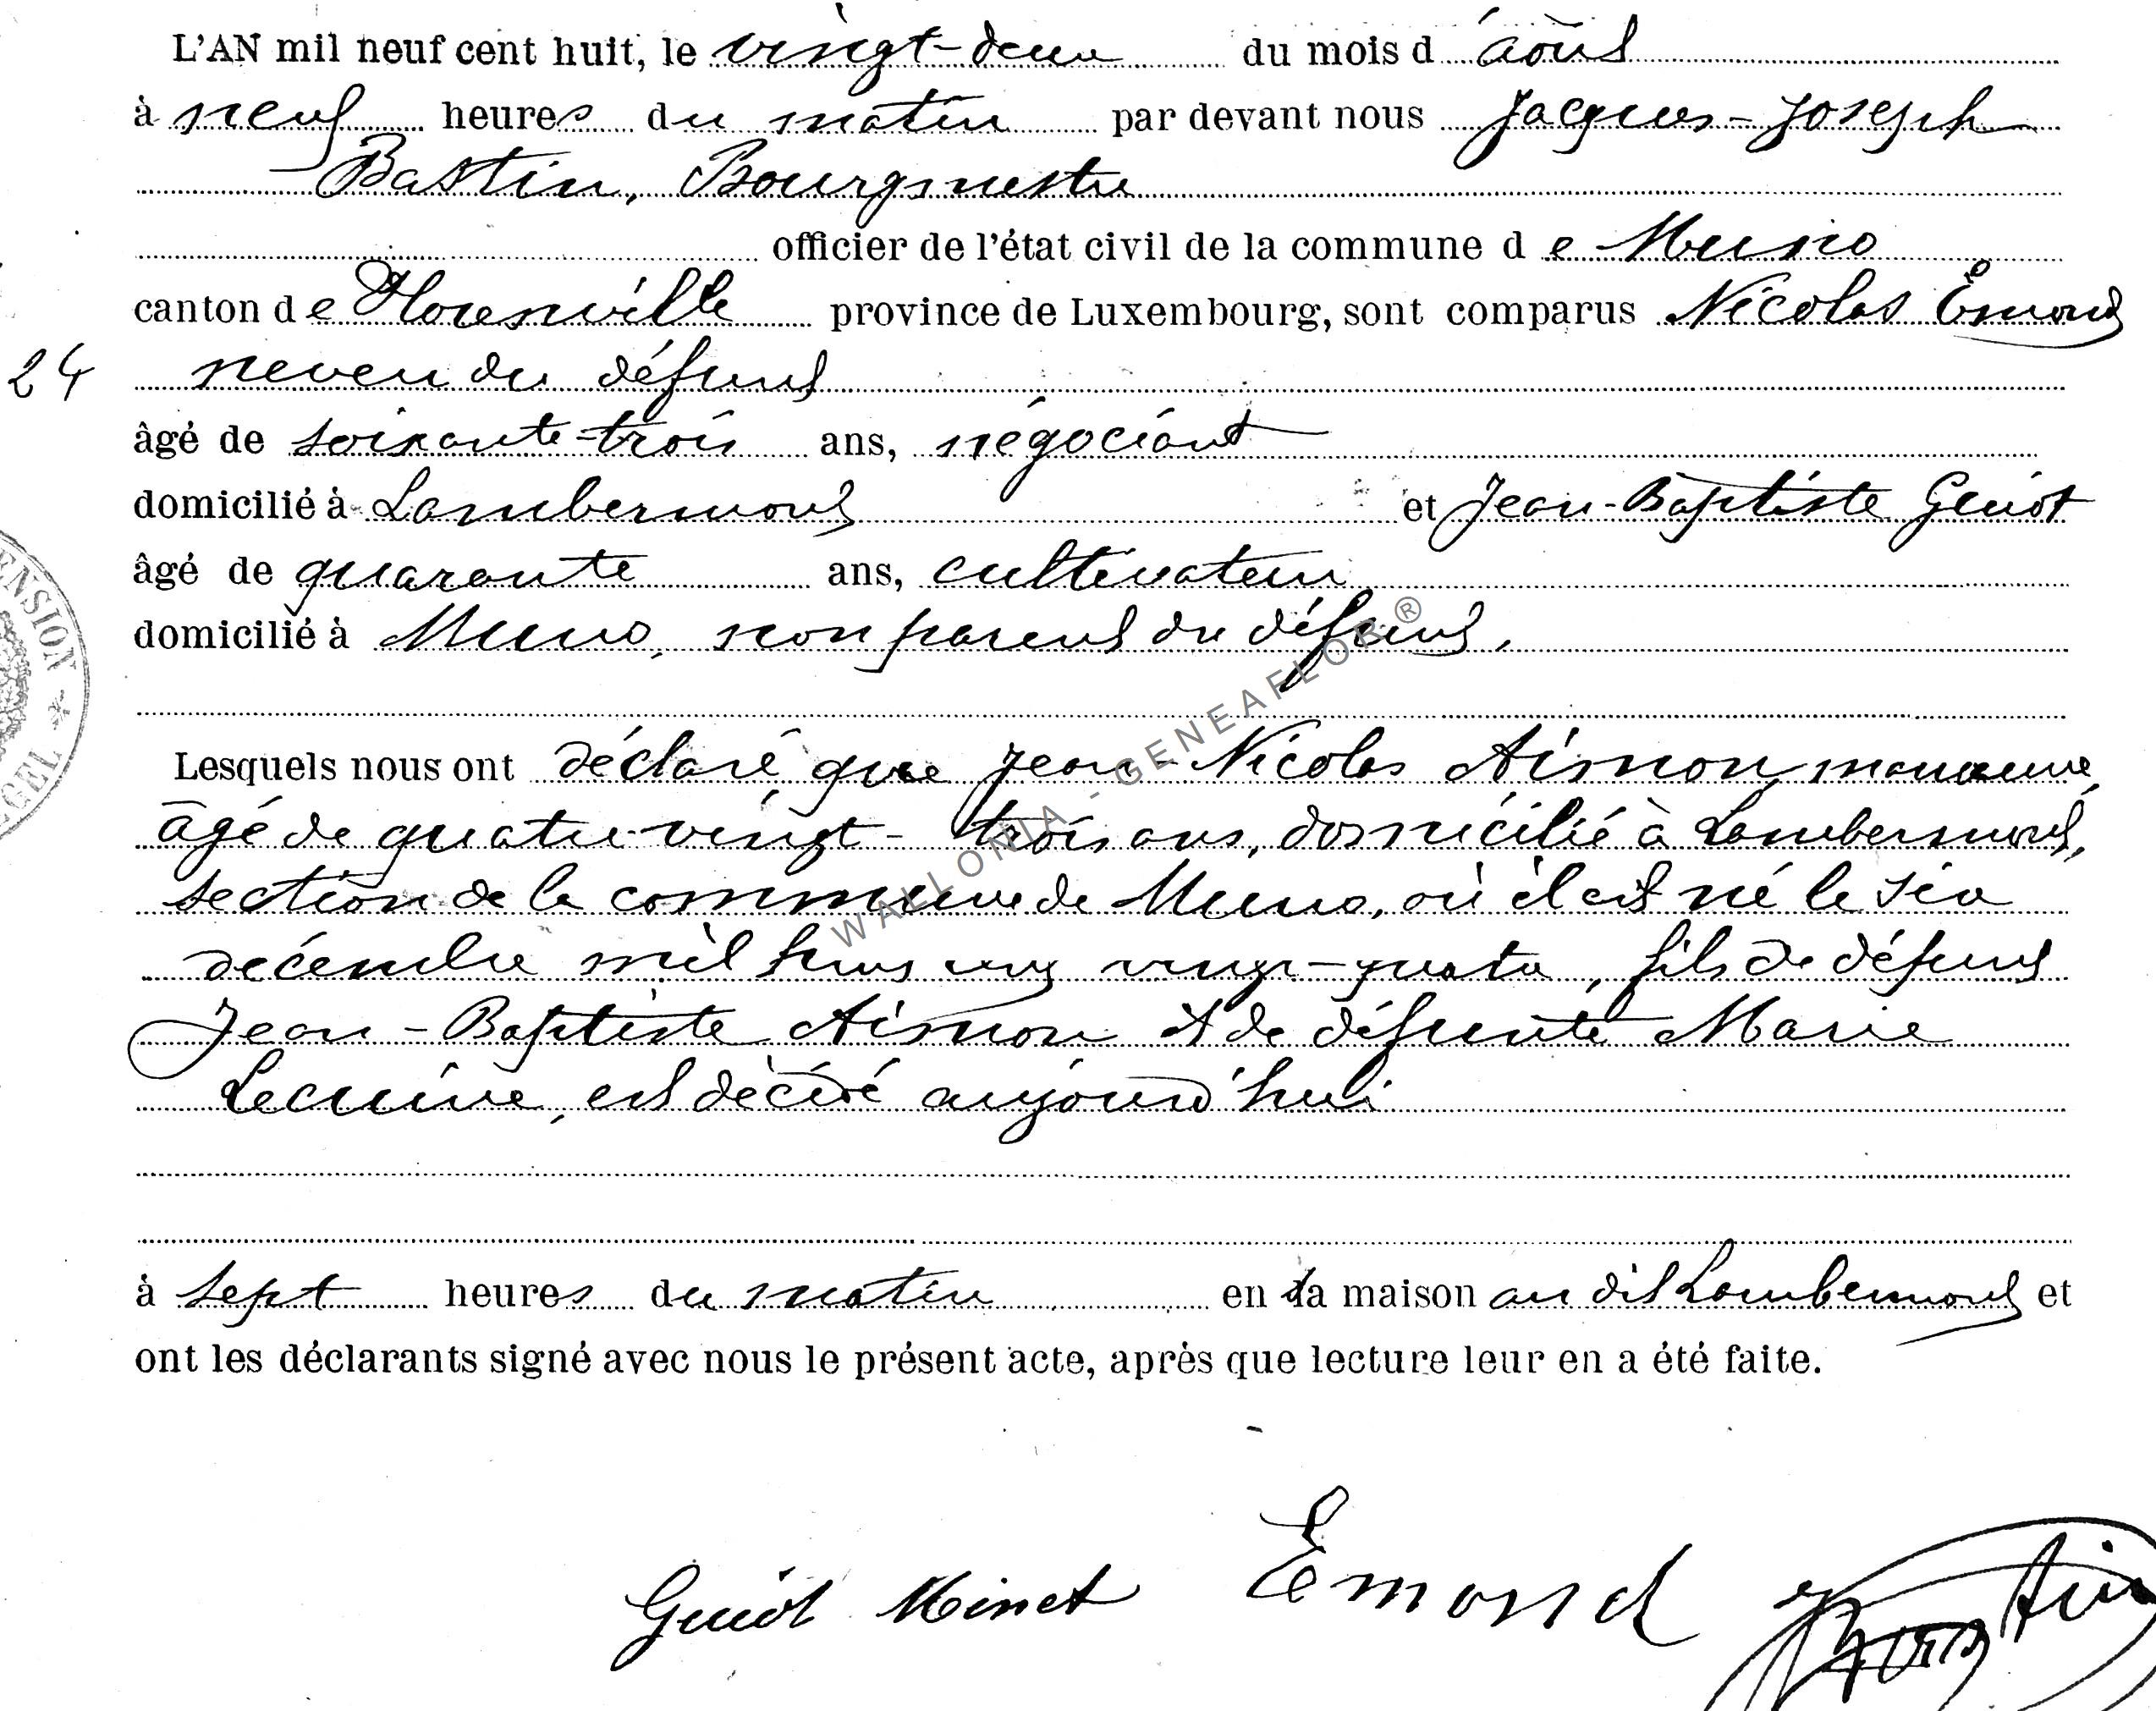 L'AN mil neuf cent huit, le vingt-deux du mois d'août
à neuf heures du matin par devant nous Jacques-Joseph
Bastin, Bourgmestre
officier de l'état civil de la commune de Muno
canton de Florenville province de Luxembourg, sont comparus Nicolas Émond
24 neveu du défunt
âgé de soixante-trois ans, négociant
domicilié à Lambermont et Jean-Baptiste Guiot
âgé de quarante ans, cultivateur
domicilié à Muno, non parent du défunt,
Lesquels nous ont déclaré que Jean-Nicolas Aimon, manœuvre,
âgé de quatre-vingt-trois ans, domicilié à Lambermont,
section de la commune de Muno, où il est né le six
décembre mil huit cent vingt-quatre, fils de défunt
Jean-Baptiste Aimon et de défunte Marie
Lecuive, est décédé aujourd'hui
à sept heures du matin en sa maison au dit Lambermont et
ont les déclarants signé avec nous le présent acte, après que lecture leur en a été faite.
Guiot Minet Émond Bastin
WALLONIA - GENEAFLOR ®